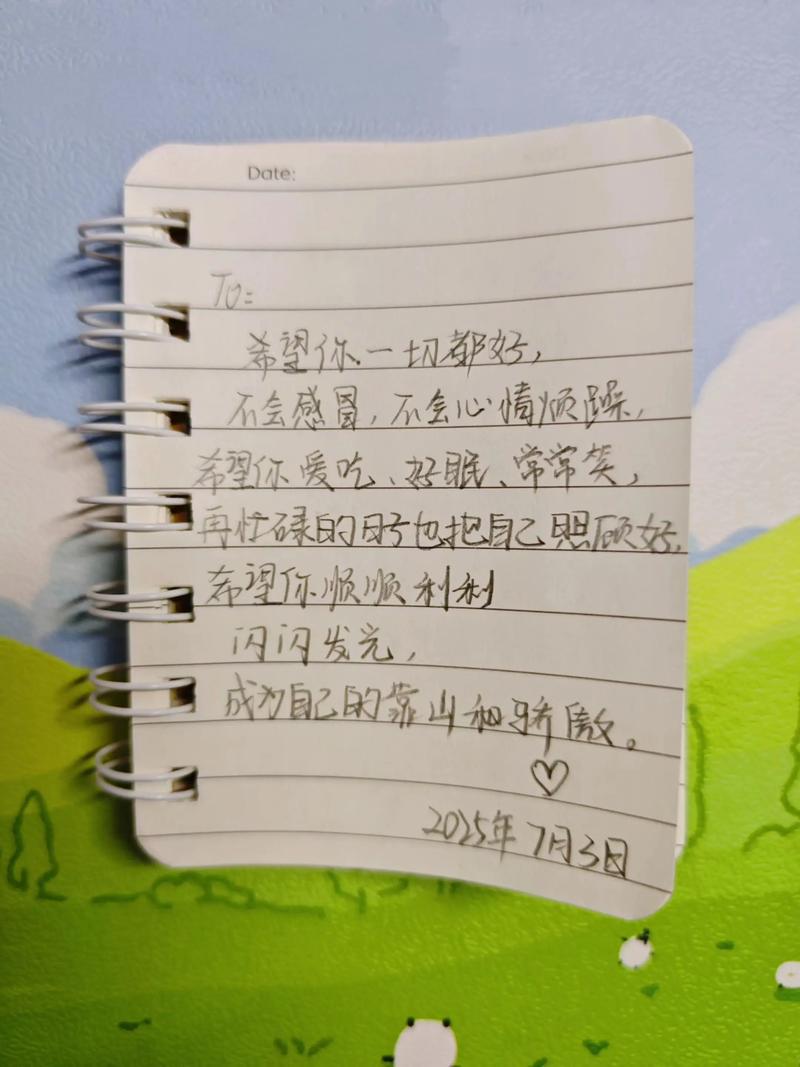 Date:
To:
希望你一切都好,
不会感冒,不会心情烦躁,
希望你爱吃、好眠、常常笑,
再忙碌的日子也把自己照顾好,
希望你顺顺利利
闪闪发光,
成为自己的靠山和骄傲。
2025年7月3日